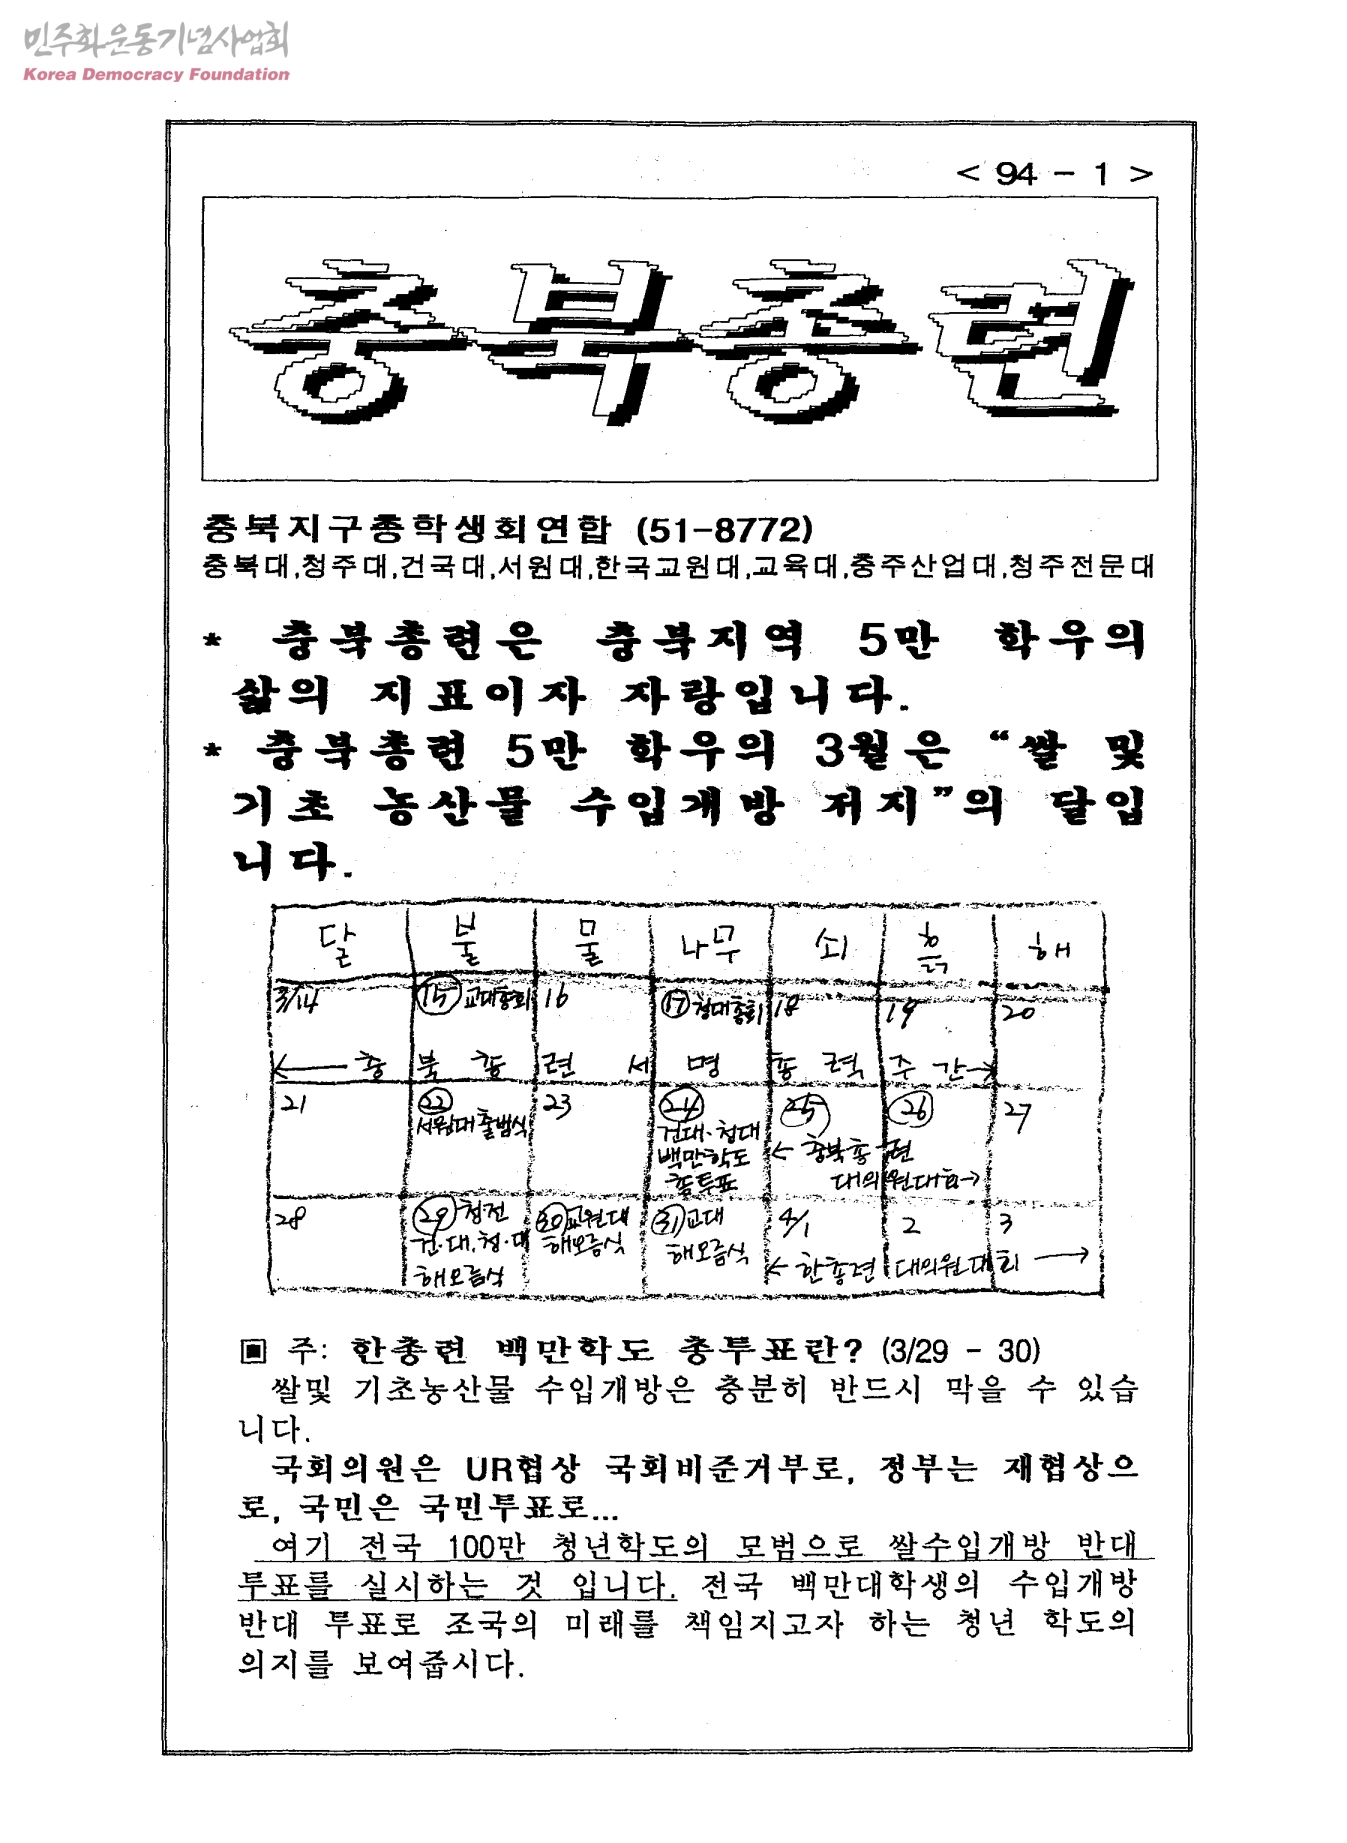 민주화운동기념사업회
Korea Democracy Foundation
< 94 - 1 >
충북총련
충북지구총학생회연합 (51-8772)
충북대,청주대,건국대,서원대,한국교원대,교육대,충주산업대,청주전문대
* 충북총련은 충북지역 5만 학우의
삶의 지표이자 자랑입니다.
* 충북총련 5만 학우의 3월은 “쌀 및
기초 농산물 수입개방 저지”의 달입
니다.
달 불 물 나무 쇠 흙 해
3/14 15 교대총회 16 17 청대총회 18 19 20
← 충북총련 서명 총력 주간→
21 22 23 24 25 26 27
서원대 출범식 건대·청대 ← 충북총련
백만학도 대의원대회→
총투표
28 29 청전 30 교원대 31 교대 4/1 2 3
건·대, 청·대 해오름식 해오름식
해오름식 ← 한총련 대의원대회 →
▣ 주: 한총련 백만학도 총투표란? (3/29 - 30)
쌀및 기초농산물 수입개방은 충분히 반드시 막을 수 있습
니다.
국회의원은 UR협상 국회비준거부로, 정부는 재협상으
로, 국민은 국민투표로...
여기 전국 100만 청년학도의 모범으로 쌀수입개방 반대
투표를 실시하는 것 입니다. 전국 백만대학생의 수입개방
반대 투표로 조국의 미래를 책임지고자 하는 청년 학도의
의지를 보여줍시다.